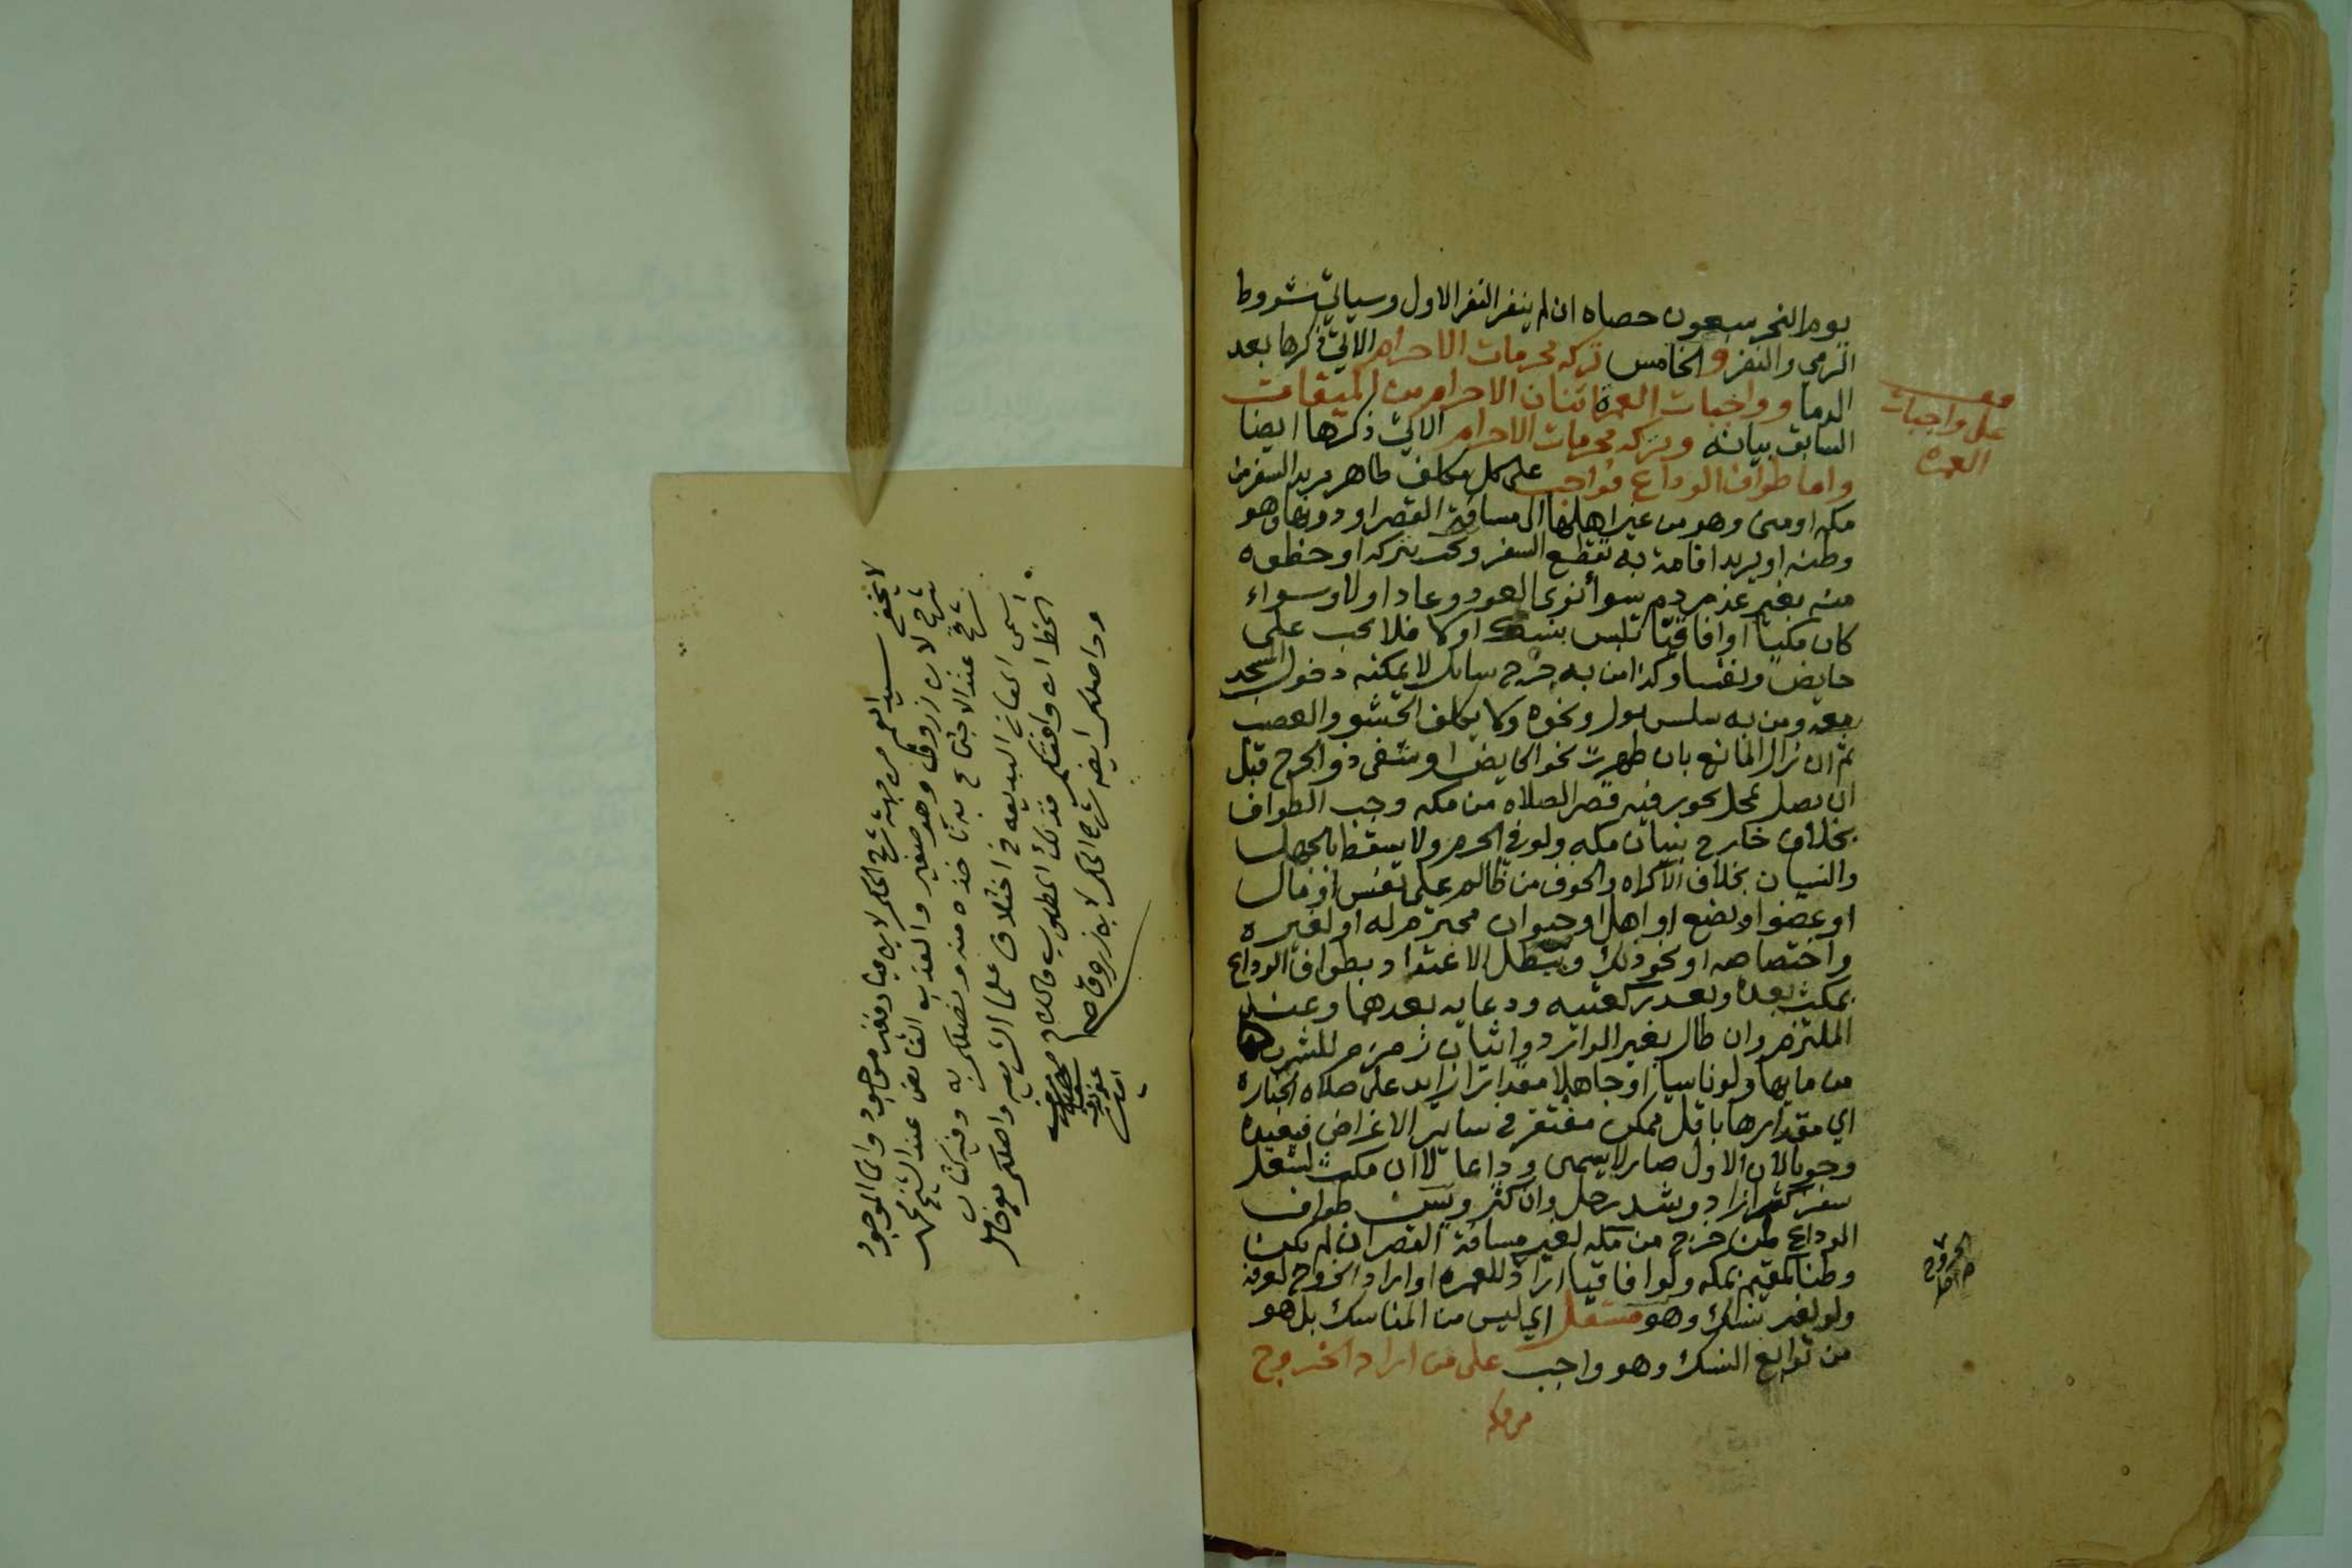 يوم النحر سبعون حصاه ان لم ينفر النفر الاول وسياتي شروط
الرمي والنفر والخامس تركه محرمات الاحرام الاتي ذكرها بعد
الدما وواجبات العمرة اثنان الاحرام من الميقات
السابق بيانه وتركه محرمات الاحرام الاتي ذكرها ايضا
واما طواف الوداع فواجب على كل مكلف طاهر يريد السفر من
مكه او منى وهو من غير اهلها الى مسافة القصر او دونها وهو
وطنه او يريد اقامة به تقطع السفر ويجب بتركه او خطوه
منه بغير عذر دم سوأ نوى العود وعاد او لا وسواء
كان مكيا او افاقيا تلبس بنسك او لا فلا يجب على
حايض ونفسا وكذا من به جرح سايل لا يمكنه دخول المسجد
معه ومن به سلس بول ونحوه ولا يكلف الحشو والعصب
ثم ان زال المانع بان طهرت نحو الحايض او شفى ذو الجرح قبل
ان يصل لمحل يجوز فيه قصر الصلاه من مكه وجب الطواف
بخلاف خارج بنيان مكه ولو في الحرم ولا يسقط بالجهل
والنسيان بخلاف الاكراه والخوف من ظالم على نفس او مال
او عضو او بضع او اهل او حيوان محترم له او لغيره
واختصاصه او نحو ذلك ويبطل الاعتداد بطواف الوداع
بمكث بعده وبعد ركعتيه ودعايه بعدهما وعند
الملتزم وان طال بغير الوارد واتيان زمزم للشرب
من مايها ولو ناسيا او جاهلا مقدار زايد على صلاه الجنازه
اي مقدارها باقل ممكن مغتفر في ساير الاغراض فيعيده
وجوبا لان الاول صار لا يسمى وداعا لا ان مكث لشغل
سفر كشرا زاد وشد رحل وان كثر ويسن طواف
الوداع لمن خرج من مكه لغير مسافة القصر ان لم يكن
وطنا لمقيم بمكه ولو افاقيا اراد للعمره او اراد الخروج لعرفة
ولو لغير نسك وهو مستقل اي ليس من المناسك بل هو
من توابع النسك وهو واجب على من اراد الخروج
من مكه
على واجبات
العمره
الخروج
لا يخفى سيد العم من جهة شرح الحكم لابن عباد فغير موجود وانما الموجود
شرح لابن زروق وهو صغير والعذب الفايض عند الشيخ محمد
شرح عند الاجتماع به تاخذه منه وتفضلكم به وفيه كتاب
اسمى المعاني البديعه في اختلاف علما الشريعه واصلكم
الخط ان وافقكم فذلك المطلوب والسلام
وواصلكم ايضه شرح الحكم لابن زروق